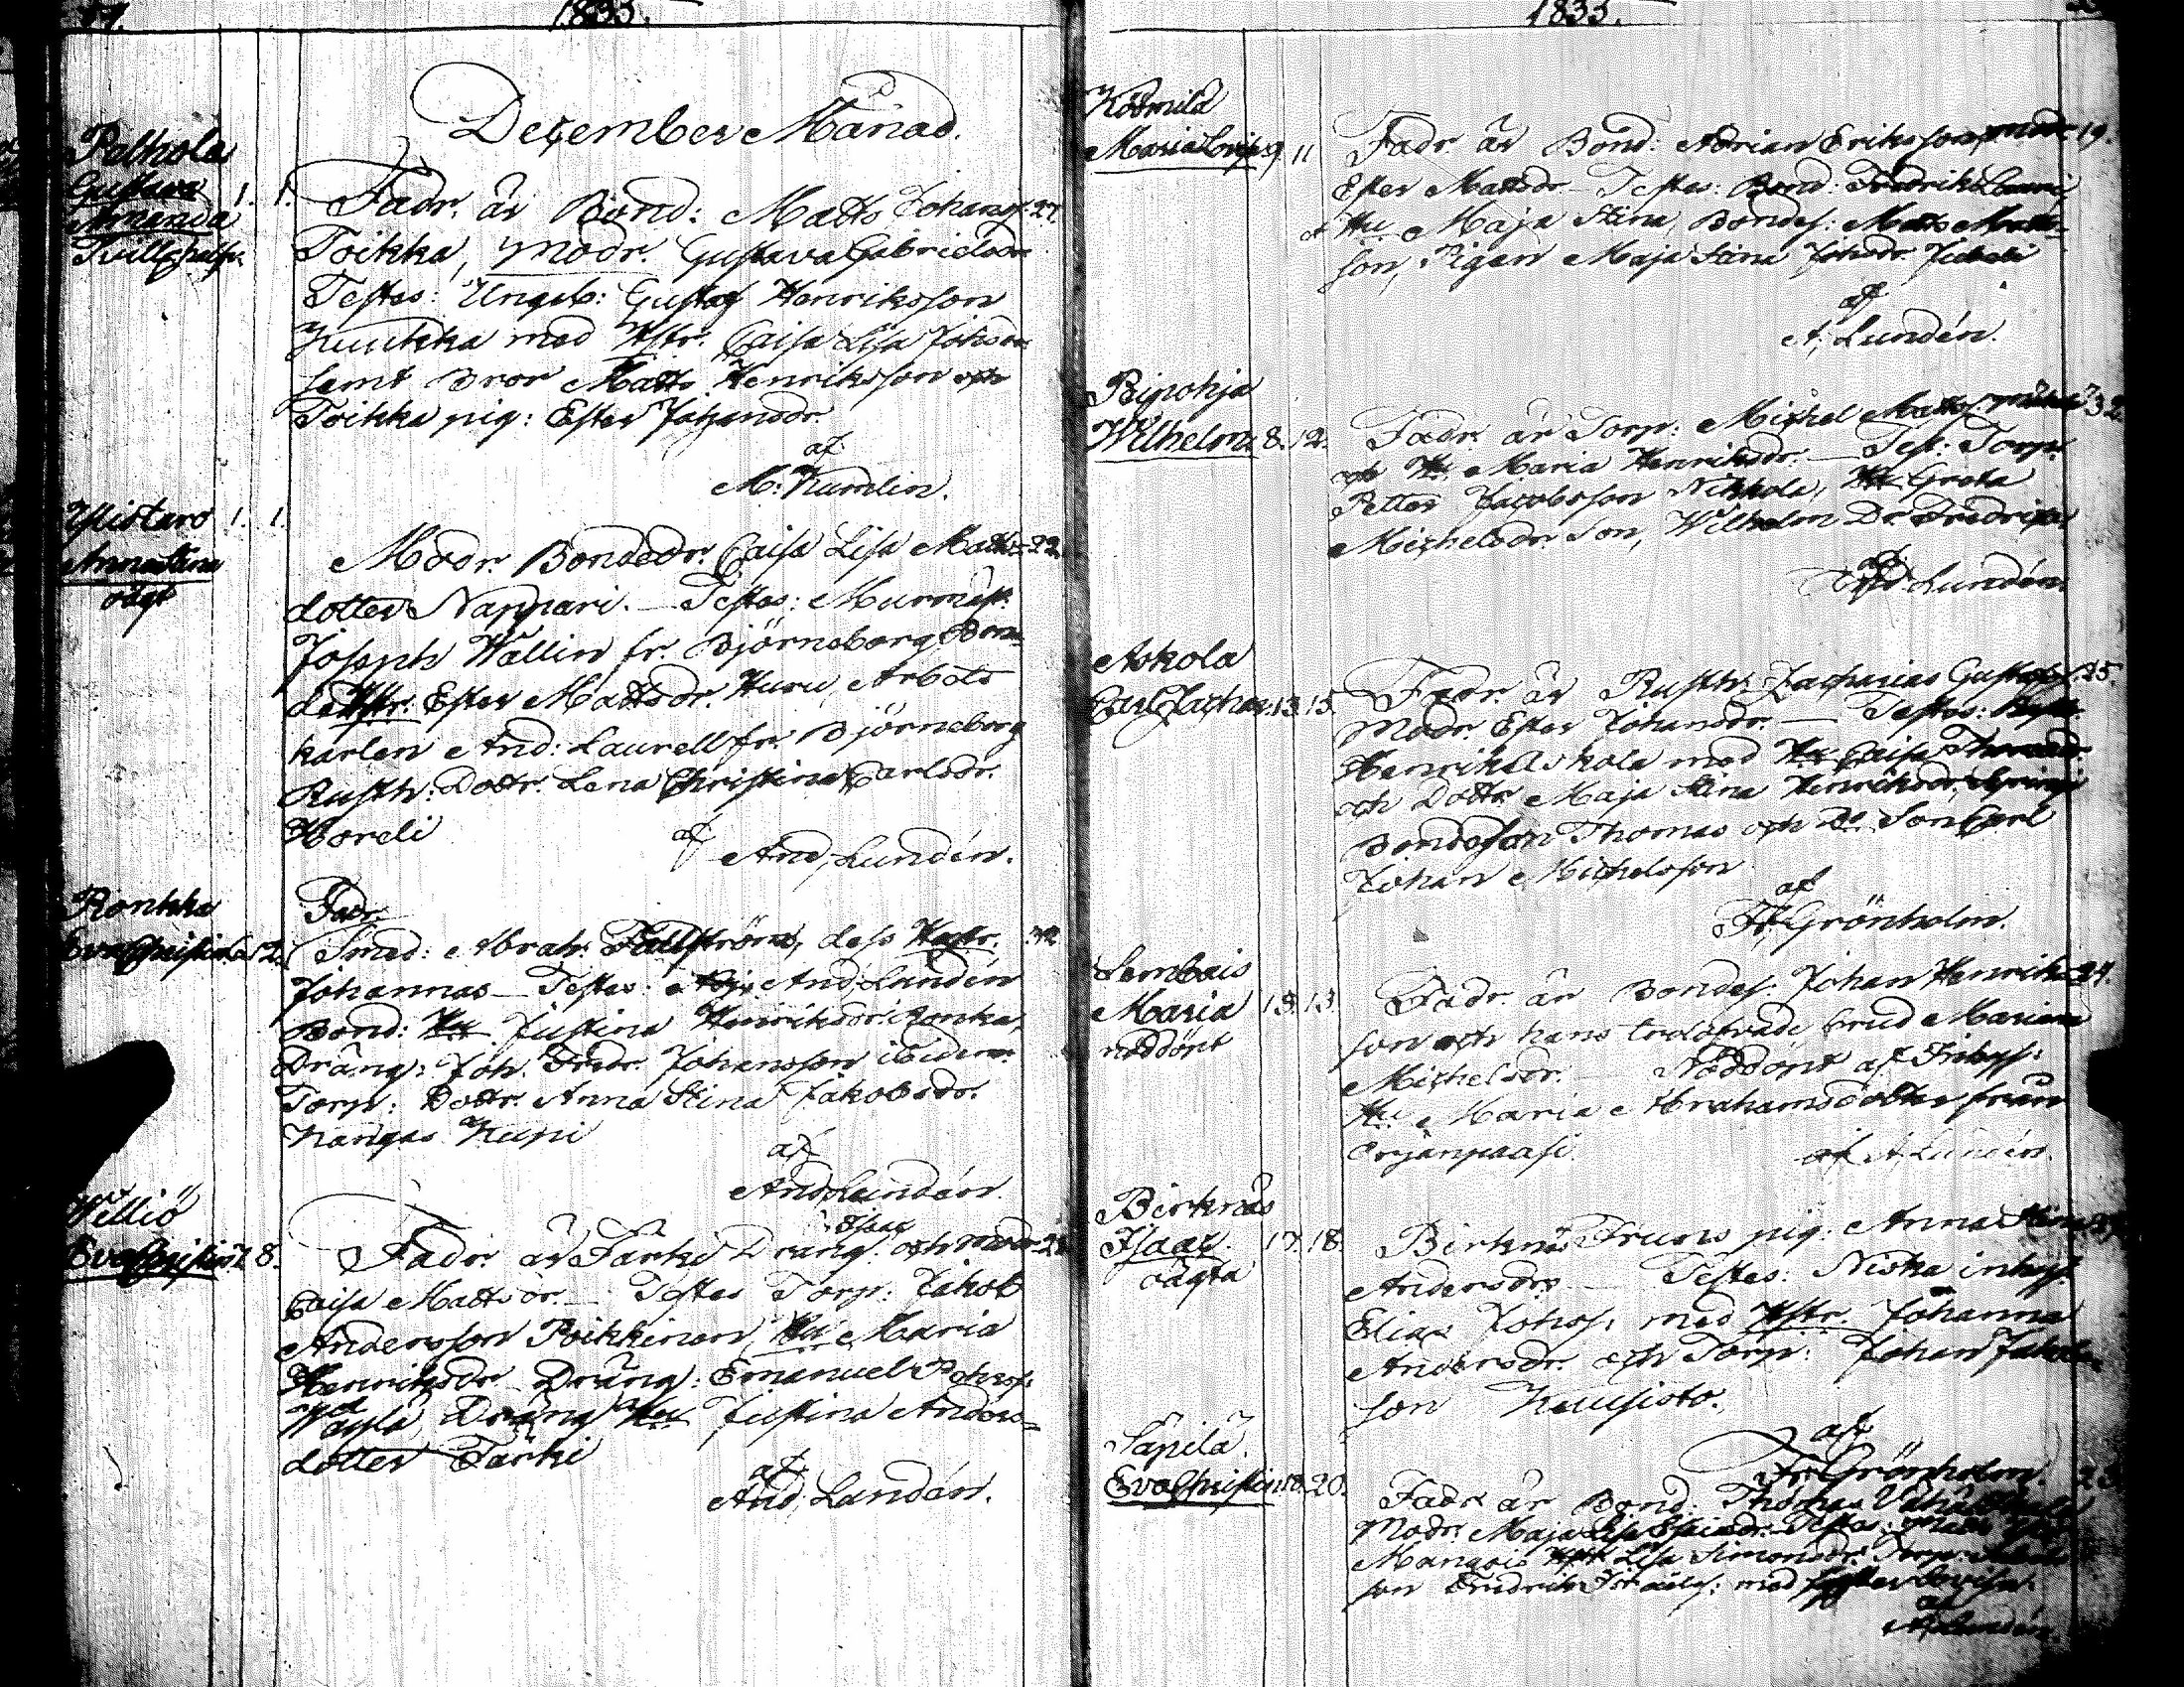 1833.
December Månad.
Palhola
Gustava 1. 1.
Amanda
Fadr. är Bond: Matts Johans: 27.
Toikka, Modr. Gustava Gabrielsdr
Testes: Ungb: Gustaf Henriksson
Kuukka med Hstr. Caisa Lisa Johsdr
samt Bror Matts Henriksson och
Toikka pig: Ester Johansdr.
af
M: Kumlin.
Ylistaro 1. 1.
Anna Stina
oägt
Modr. Bondedr. Caisa Lisa Matts= 22
dotter Nappari. Testes: Murmäst:
Joseph Wallin fr. Björneborg, Bon=
de Hstr: Ester Mattsdr. Huru, Arbets
karlen And: Laurell fr. Björneborg
Rusth: Dottr. Lena Christina Carlsdr.
Horeli
af
And, Lundén.
Ronkka
Eva Christina 2.
Fadr.
Smed: Abrah: Fallström, dess Hustr. 32
Johannas Testes: And, Lundén
Bond: Hu Justina Henriksdr. Ronka,
Dräng: Joh. Fredr. Johansson ibidem.
Torp: Dottr. Anna Stina Jakobsdr.
Kangas Kupi
af
And, Lundén.
Williö
Eva Christin 7. 8.
Isaac
Fadr. är Färki Dräng: och modr.
Caisa Mattsdr. Testes Torp: Jakob
Andersson Poikkinen, Hu Maria
Henriksdr Dräng: Emanuel Johs:
Dräng Hu Justina Anders=
dotter Färki
af
And, Lundén.
1833.
Kösmilä
Maria Lovis. 9. 11
Fadr. är Bond: Adrian Eriksson, modr. 19.
Ester Mattsdr Testes: Bond: Fredrik Lauri,
Hu Maja Stina, Bondes: Matts Matts=
son, Pigan Maja Stina Johsdr.
af
A, Lundén.
Ripohja
Wilhelm 8. 12.
Fadr. är Torp: Michel Matts: 32
och Hu Maria Henriksdr. Test: Torp.
Petter Jacobsson Nikkola, Hu Greta
Michelsdr. Son, Wilhelm Dr. Fredrika
af
And Lundén.
Askola
Carl Zachar. 13. 15.
Fadr. är Rusth: Zacharias Gustafs: 25.
Modr. Ester Johansdr. Testes: Rusth.
Henrik Askola med Hu Caisa Thomasdr.
och Dottr. Maja Stina Henriksdr,
Bondeson Thomas och Do Son Carl
Johan Michelsson
af
Fr, Grönholm.
Lembois
Maria 13. 13.
nöddöpt
Fadr. är Bondes: Johan Henriks 24.
son och hans trolofvade brud Mariana
Michelsdr. Nöddöpt af Inhys:
Hu Maria Abrahamsdotter från
Orjanpaasi.
af A, Lundén.
Birknäs
Isaac. 17. 18.
oägta
Birknäs Fruns pig: Anna Stina 27
Andersdr. Testes: Niska inhys:
Elias Johs: med Hstr. Johanna
Andersdr. och Torp: Johan Jakobs=
son Kuusisto.
af
Fr. Grönholm.
Sapila.
Eva Christin 18. 20.
Fadr är Bond: Thomas 23.
Modr. Maja Lisa Testes:
Mangois Hstr Lisa Simonsdr. Torp:
son Fredrik med Lovisa
af
A, Lundén.